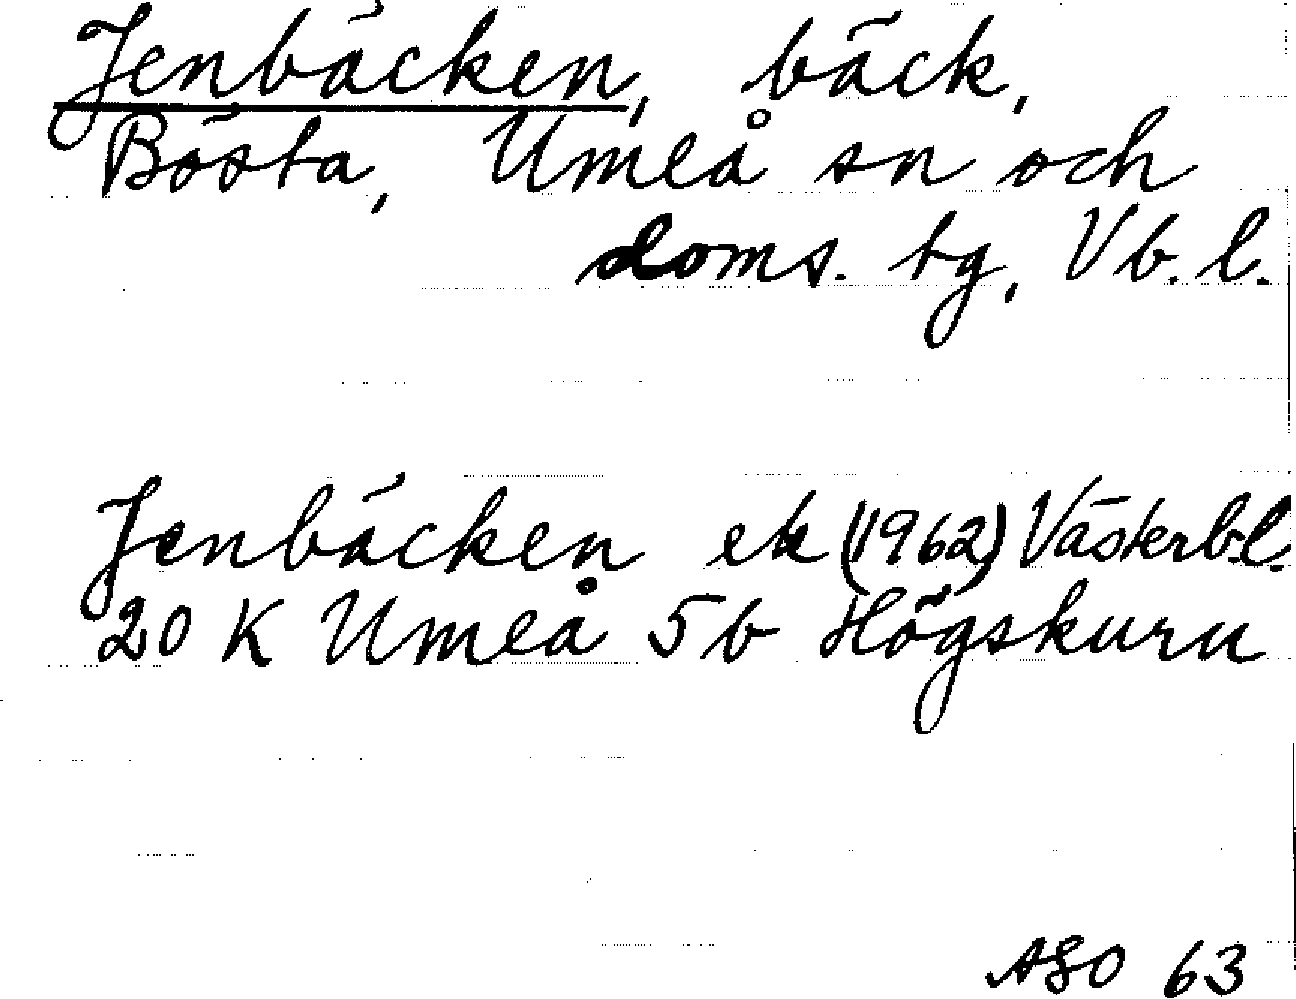 Jenbäcken, bäck,
Bösta, Umeå sn och
doms. tg, Vb. l.
Jenbäcken ek (1962) Västerb.l.
20 K Umeå 5b Högskuru
ASO 63